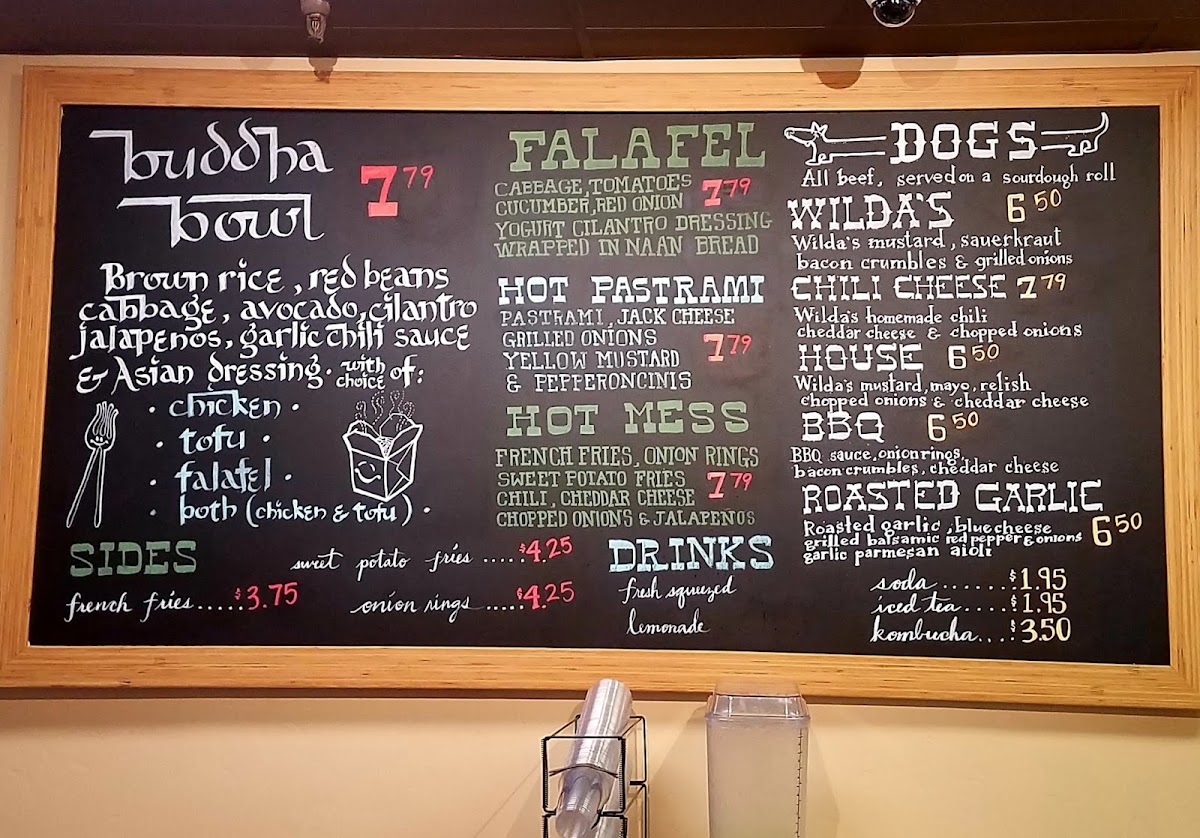 buddha
bowl
7 79
Brown rice, red beans
cabbage, avocado, cilantro
jalapenos, garlic chili sauce
& Asian dressing. with choice of:
· chicken ·
· tofu ·
· falafel ·
· both (chicken & tofu) ·
SIDES
sweet potato fries ..... $4.25
french fries ..... $3.75
onion rings ..... $4.25
FALAFEL
CABBAGE, TOMATOES
CUCUMBER, RED ONION 7 79
YOGURT CILANTRO DRESSING
WRAPPED IN NAAN BREAD
HOT PASTRAMI
PASTRAMI, JACK CHEESE
GRILLED ONIONS
YELLOW MUSTARD 7 79
& PEPPERONCINIS
HOT MESS
FRENCH FRIES, ONION RINGS
SWEET POTATO FRIES
CHILI, CHEDDAR CHEESE 7 79
CHOPPED ONIONS & JALAPEÑOS
DRINKS
fresh squeezed
lemonade
DOGS
All beef, served on a sourdough roll
WILDA'S 6 50
Wilda's mustard, sauerkraut
bacon crumbles & grilled onions
CHILI CHEESE 7 79
Wilda's homemade chili
cheddar cheese & chopped onions
HOUSE 6 50
Wilda's mustard, mayo, relish
chopped onions & cheddar cheese
BBQ 6 50
BBQ sauce, onion rings,
bacon crumbles, cheddar cheese
ROASTED GARLIC
Roasted garlic, blue cheese
grilled balsamic red pepper & onions 6 50
garlic parmesan aioli
soda ....... $1.95
iced tea ..... $1.95
kombucha .... $3.50